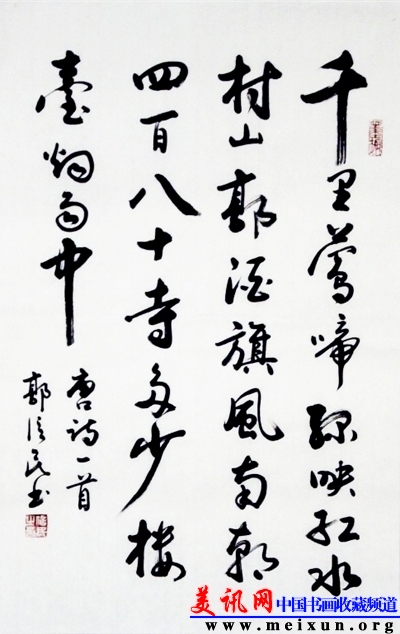 千里鶯啼绿映红水
村山郭酒旗風南朝
四百八十寺多少楼
臺烟雨中
唐诗一首
郭信民书
美讯网 中国书画收藏频道
www.meixun.org